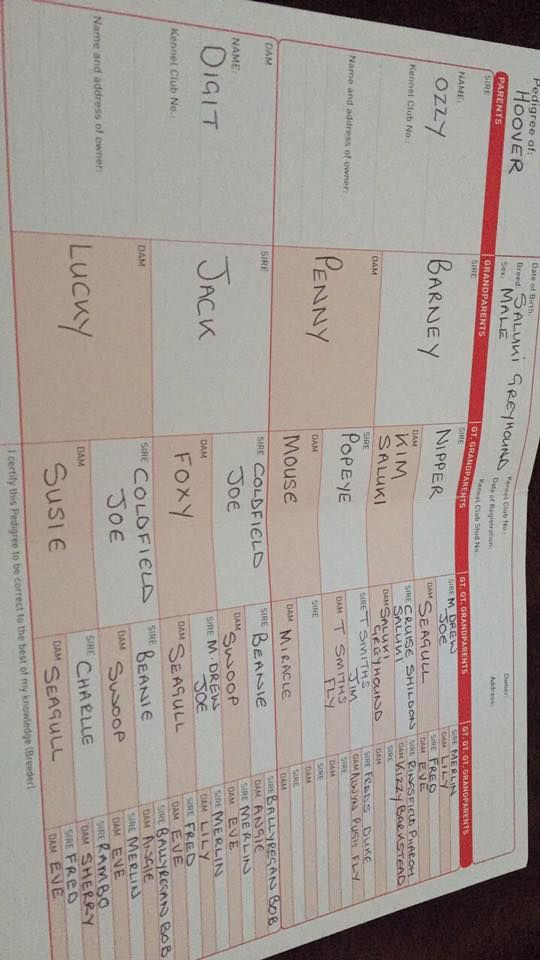 Pedigree of:
HOOVER
Date of Birth:
Breed SALUKI GREYHOUND
Sex: MALE
Kennel Club No.:
Date of Registration:
Kennel Club Stud No.
Owner:
Address:
PARENTS
GRANDPARENTS
GT. GRANDPARENTS
GT. GT. GRANDPARENTS
GT. GT. GT. GRANDPARENTS
SIRE
NAME:
OZZY
Kennel Club No.:
Name and address of owner:
DAM
NAME:
DIGIT
Kennel Club No.:
Name and address of owner:
SIRE
BARNEY
DAM
PENNY
SIRE
JACK
DAM
LUCKY
SIRE
NIPPER
DAM
KIM
SALUKI
SIRE
POPEYE
DAM
MOUSE
SIRE COLDFIELD
JOE
DAM
FOXY
SIRE COLDFIELD
JOE
DAM
SUSIE
SIRE M.DREW
JOE
DAM SEAGULL
SIRE CRUISE SHILDON
SALUKI
DAM SALUKI
GREYHOUND
SIRE T SMITHS
JIM
DAM T SMITHS
FLY
SIRE
DAM MIRACLE
SIRE BEANIE
DAM SWOOP
SIRE M.DREW
JOE
DAM SEAGULL
SIRE BEANIE
DAM SWOOP
SIRE CHARLIE
DAM SEAGULL
SIRE MERLIN
DAM LILY
SIRE FRED
DAM EVE
SIRE RINGSFIELD PHAROH
DAM KIZZY BARKSTEAD
SIRE
DAM
SIRE FREDS DUKE
DAM ALWYN PUSH FLY
SIRE
DAM
SIRE
DAM
SIRE
DAM
SIRE BALLYREGAN BOB
DAM ANGIE
SIRE MERLIN
DAM EVE
SIRE MERLIN
DAM LILY
SIRE FRED
DAM EVE
SIRE BALLYREGAN BOB
DAM ANGIE
SIRE MERLIN
DAM EVE
SIRE RAMBO
DAM SHERRY
SIRE FRED
DAM EVE
I certify this Pedigree to be correct to the best of my knowledge (Breeder)